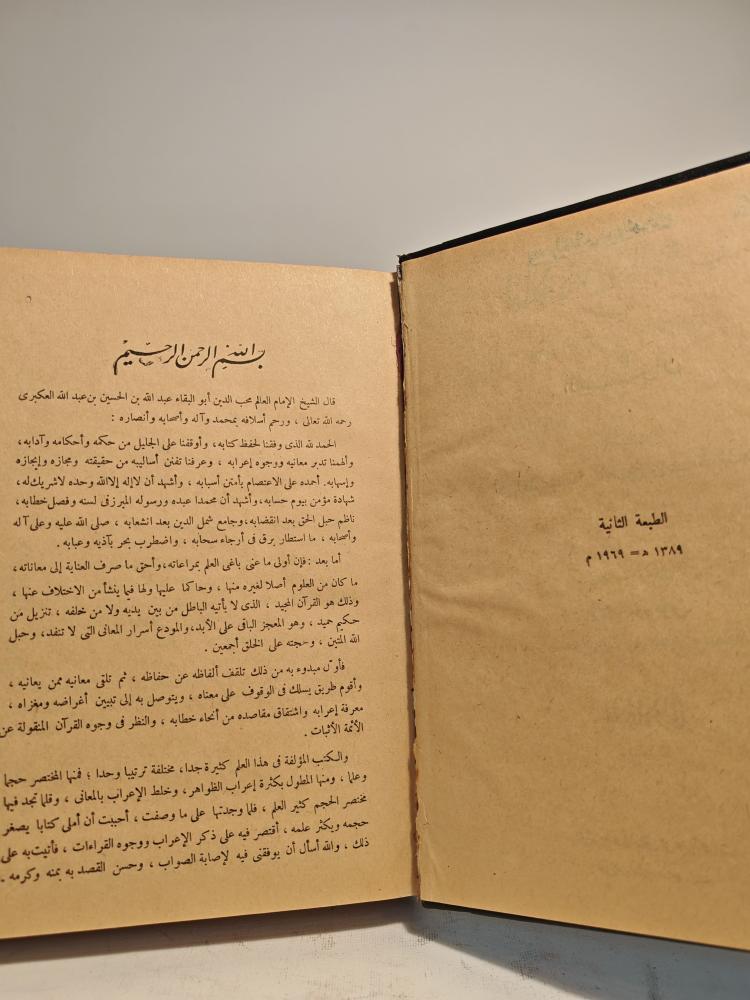 الطبعة الثانية
١٣٨٩ ھ = ١٩٦٩ م
بسم الله الرحمن الرحيم
قال الشيخ الإمام العالم محب الدين أبو البقاء عبد الله بن الحسين بن عبد الله العكبرى
رحمه الله تعالى ، ورحم أسلافه بمحمد وآله وأصحابه وأنصاره :
الحمد لله الذى وفقنا لحفظ كتابه ، وأوقفنا على الجليل من حكمه وأحكامه وآدابه ،
وألهمنا تدبر معانيه ووجوه إعرابه ، وعرفنا تفنن أساليبه من حقيقته ومجازه وإيجازه
وإسهابه. أحمده على الاعتصام بأمتن أسبابه ، وأشهد أن لا إله إلا الله وحده لاشريك له ،
شهادة مؤمن بيوم حسابه، وأشهد أن محمدا عبده ورسوله المبرز فى لسنه وفصل خطابه ،
ناظم حبل الحق بعد انقضابه، وجامع شمل الدين بعد انشعابه ، صلى الله عليه وعلى آله
وأصحابه ، ما استطار برق فى أرجاء سحابه ، واضطرب بحر بآذيه وعبابه .
أما بعد : فإن أولى ما عنى باغى العلم بمراعاته، وأحق ما صرف العناية إلى معاناته ،
ما كان من العلوم أصلا لغيره منها ، وحاكما عليها ولها فيما ينشأ من الاختلاف عنها ،
وذلك هو القرآن المجيد ، الذى لا يأتيه الباطل من بين يديه ولا من خلفه ، تنزيل من
حكيم حميد ، وهو المعجز الباقى على الأبد، والمودع أسرار المعانى التى لا تنفد، وحبل
الله المتين ، وحجته على الخلق أجمعين .
فأول مبدوء به من ذلك تلقف ألفاظه عن حفاظه ، ثم تلقى معانيه ممن يعانيه ،
وأقوم طريق يسلك فى الوقوف على معناه ، ويتوصل به إلى تبيين أغراضه ومغزاه ،
معرفة إعرابه واشتقاق مقاصده من أنحاء خطابه ، والنظر فى وجوه القرآن المنقولة عن
الأئمة الأثبات .
والكتب المؤلفة فى هذا العلم كثيرة جدا، مختلفة ترتيبا وحدا ؛ فمنها المختصر حجما
وعلما ، ومنها المطول بكثرة إعراب الظواهر، وخلط الإعراب بالمعانى ، وقلما تجد فيها
مختصر الحجم كثير العلم ، فلما وجدتها على ما وصفت ، أحببت أن أملى كتابا يصغر
حجمه ويكثر علمه ، أقتصر فيه على ذكر الإعراب ووجوه القراءات ، فأتيت به على
ذلك ، والله أسأل أن يوفقنى فيه لإصابة الصواب ، وحسن القصد به بمنه وكرمه .